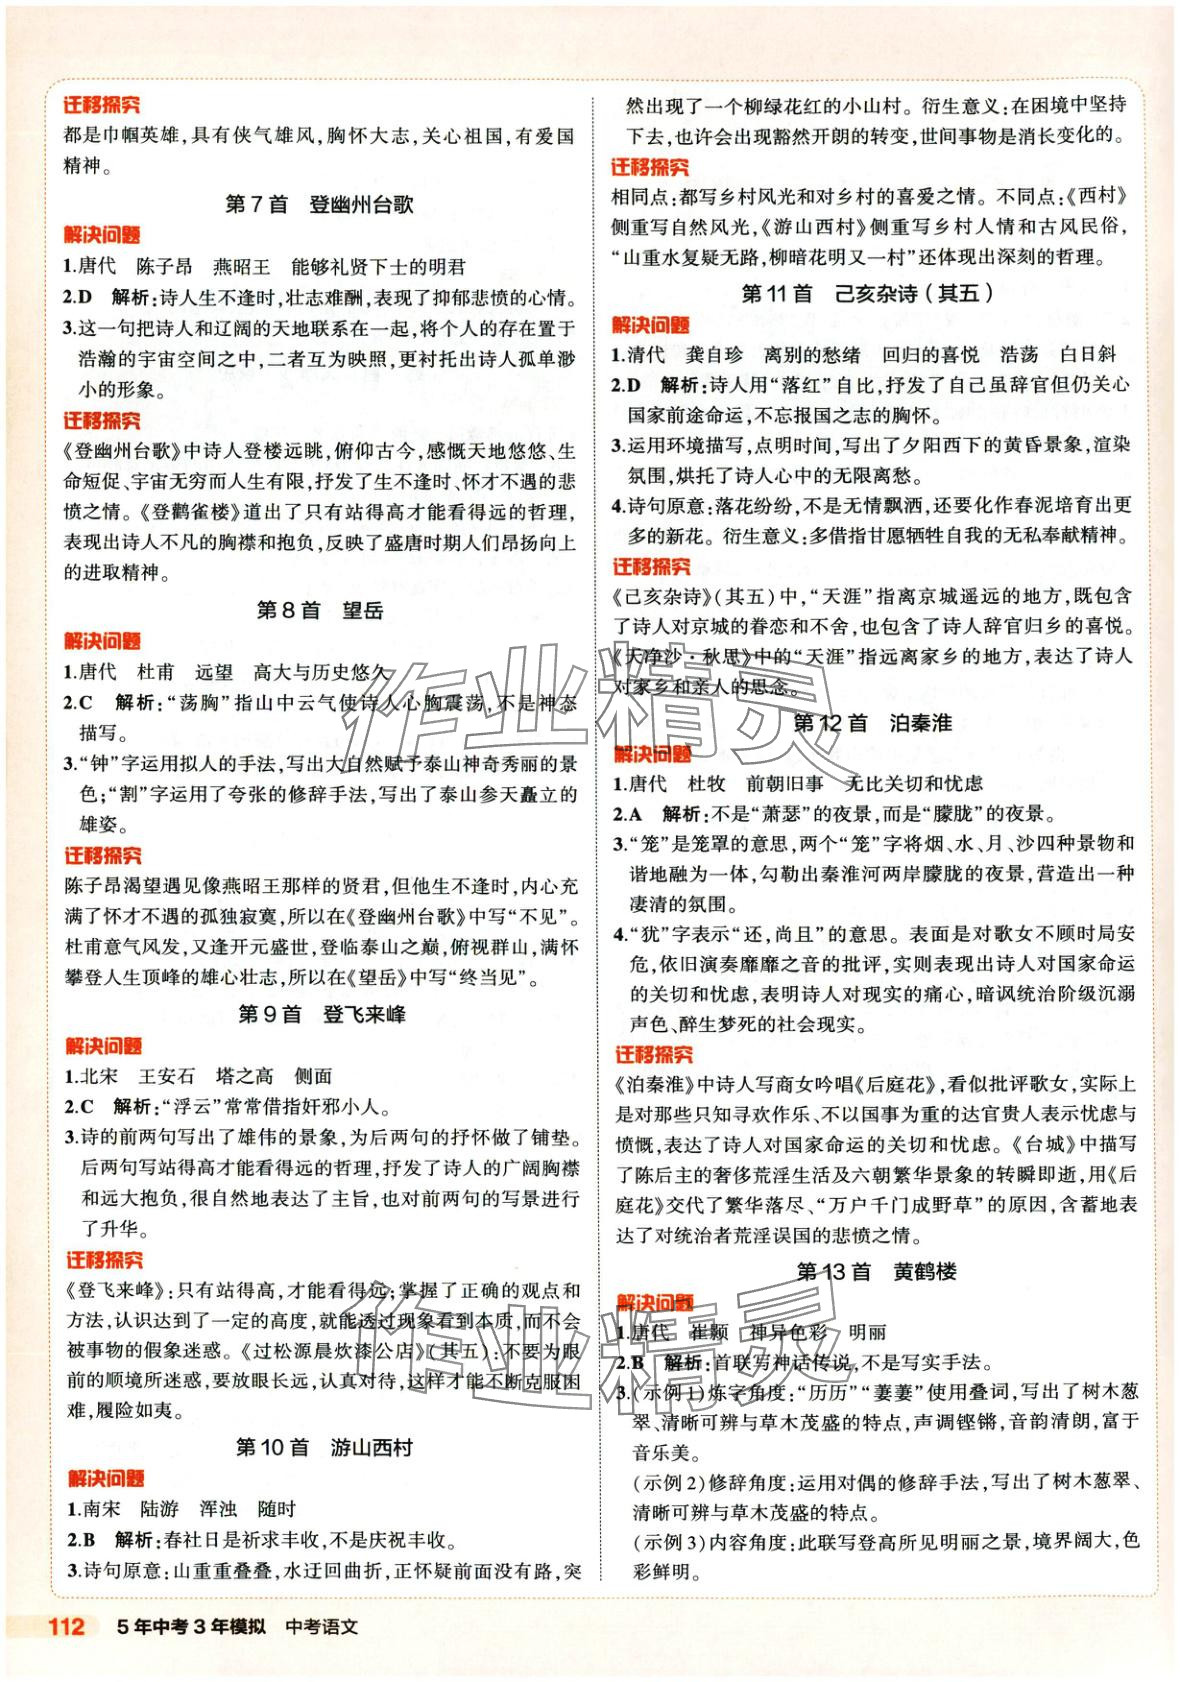 迁移探究
都是巾帼英雄,具有侠气雄风,胸怀大志,关心祖国,有爱国
精神。
第7首 登幽州台歌
解决问题
1.唐代 陈子昂 燕昭王 能够礼贤下士的明君
2.D 解析:诗人生不逢时,壮志难酬,表现了抑郁悲愤的心情。
3.这一句把诗人和辽阔的天地联系在一起,将个人的存在置于
浩瀚的宇宙空间之中,二者互为映照,更衬托出诗人孤单渺
小的形象。
迁移探究
《登幽州台歌》中诗人登楼远眺,俯仰古今,感慨天地悠悠、生
命短促、宇宙无穷而人生有限,抒发了生不逢时、怀才不遇的悲
愤之情。《登鹳雀楼》道出了只有站得高才能看得远的哲理,
表现出诗人不凡的胸襟和抱负,反映了盛唐时期人们昂扬向上
的进取精神。
第8首 望岳
解决问题
1.唐代 杜甫 远望 高大与历史悠久
2.C 解析:“荡胸”指山中云气使诗人心胸震荡,不是神态
描写。
3.“钟”字运用拟人的手法,写出大自然赋予泰山神奇秀丽的景
色;“割”字运用了夸张的修辞手法,写出了泰山参天矗立的
雄姿。
迁移探究
陈子昂渴望遇见像燕昭王那样的贤君,但他生不逢时,内心充
满了怀才不遇的孤独寂寞,所以在《登幽州台歌》中写“不见”。
杜甫意气风发,又逢开元盛世,登临泰山之巅,俯视群山,满怀
攀登人生顶峰的雄心壮志,所以在《望岳》中写“终当见”。
第9首 登飞来峰
解决问题
1.北宋 王安石 塔之高 侧面
2.C 解析:“浮云”常常借指奸邪小人。
3.诗的前两句写出了雄伟的景象,为后两句的抒怀做了铺垫。
后两句写站得高才能看得远的哲理,抒发了诗人的广阔胸襟
和远大抱负,很自然地表达了主旨,也对前两句的写景进行
了升华。
迁移探究
《登飞来峰》:只有站得高,才能看得远;掌握了正确的观点和
方法,认识达到了一定的高度,就能透过现象看到本质,而不会
被事物的假象迷惑。《过松源晨炊漆公店》(其五):不要为眼
前的顺境所迷惑,要放眼长远,认真对待,这样才能不断克服困
难,履险如夷。
第10首 游山西村
解决问题
1.南宋 陆游 浑浊 随时
2.B 解析:春社日是祈求丰收,不是庆祝丰收。
3.诗句原意:山重重叠叠,水迂回曲折,正怀疑前面没有路,突
然出现了一个柳绿花红的小山村。衍生意义:在困境中坚持
下去,也许会出现豁然开朗的转变,世间事物是消长变化的。
迁移探究
相同点:都写乡村风光和对乡村的喜爱之情。不同点:《西村》
侧重写自然风光,《游山西村》侧重写乡村人情和古风民俗,
“山重水复疑无路,柳暗花明又一村”还体现出深刻的哲理。
第11首 己亥杂诗(其五)
解决问题
1.清代 龚自珍 离别的愁绪 回归的喜悦 浩荡 白日斜
2.D 解析:诗人用“落红”自比,抒发了自己虽辞官但仍关心
国家前途命运,不忘报国之志的胸怀。
3.运用环境描写,点明时间,写出了夕阳西下的黄昏景象,渲染
氛围,烘托了诗人心中的无限离愁。
4.诗句原意:落花纷纷,不是无情飘洒,还要化作春泥培育出更
多的新花。衍生意义:多借指甘愿牺牲自我的无私奉献精神。
迁移探究
《己亥杂诗》(其五)中,“天涯”指离京城遥远的地方,既包含
了诗人对京城的眷恋和不舍,也包含了诗人辞官归乡的喜悦。
《天净沙·秋思》中的“天涯”指远离家乡的地方,表达了诗人
对家乡和亲人的思念。
第12首 泊秦淮
解决问题
1.唐代 杜牧 前朝旧事 无比关切和忧虑
2.A 解析:不是“萧瑟”的夜景,而是“朦胧”的夜景。
3.“笼”是笼罩的意思,两个“笼”字将烟、水、月、沙四种景物和
谐地融为一体,勾勒出秦淮河两岸朦胧的夜景,营造出一种
凄清的氛围。
4.“犹”字表示“还,尚且”的意思。表面是对歌女不顾时局安
危,依旧演奏靡靡之音的批评,实则表现出诗人对国家命运
的关切和忧虑,表明诗人对现实的痛心,暗讽统治阶级沉溺
声色、醉生梦死的社会现实。
迁移探究
《泊秦淮》中诗人写商女吟唱《后庭花》,看似批评歌女,实际上
是对那些只知寻欢作乐、不以国事为重的达官贵人表示忧虑与
愤慨,表达了诗人对国家命运的关切和忧虑。《台城》中描写
了陈后主的奢侈荒淫生活及六朝繁华景象的转瞬即逝,用《后
庭花》交代了繁华落尽、“万户千门成野草”的原因,含蓄地表
达了对统治者荒淫误国的悲愤之情。
第13首 黄鹤楼
解决问题
1.唐代 崔颢 神异色彩 明丽
2.B 解析:首联写神话传说,不是写实手法。
3.(示例1)炼字角度:“历历”“萋萋”使用叠词,写出了树木葱
翠、清晰可辨与草木茂盛的特点,声调铿锵,音韵清朗,富于
音乐美。
(示例2)修辞角度:运用对偶的修辞手法,写出了树木葱翠、
清晰可辨与草木茂盛的特点。
(示例3)内容角度:此联写登高所见明丽之景,境界阔大,色
彩鲜明。
作业精灵
作业精灵
112 5年中考3年模拟 中考语文